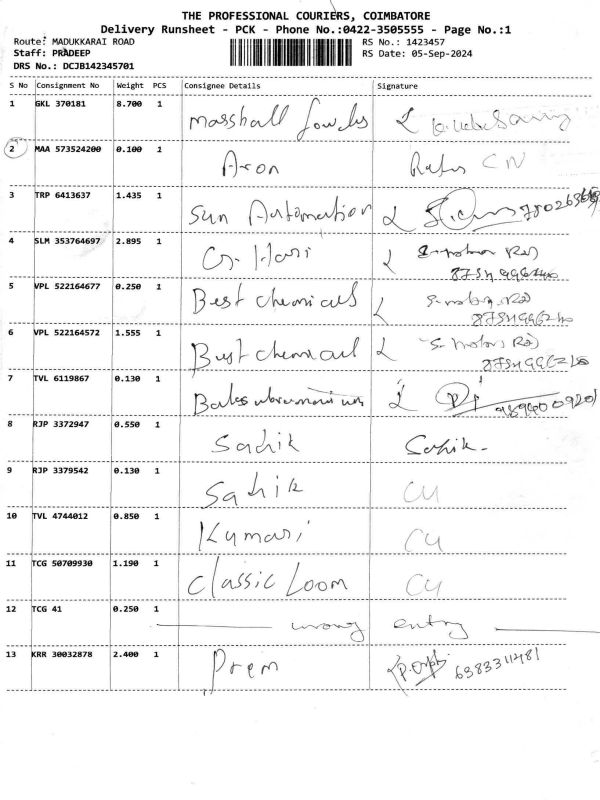 THE PROFESSIONAL COURIERS, COIMBATORE
Delivery Runsheet - PCK - Phone No.:0422-3505555 - Page No.:1
Route: MADUKKARAI ROAD
RS No.: 1423457
Staff: PRADEEP
RS Date: 05-Sep-2024
DRS No.: DCJB142345701
S No Consignment No Weight PCS Consignee Details Signature
1 GKL 370181 8.700 1 Masshall
2 MAA 573524200 0.100 1 Aron
3 TRP 6413637 1.435 1 Sun Automation
4 SLM 353764697 2.895 1 G. Hari
5 VPL 522164677 0.250 1 Best chemicals
6 VPL 522164572 1.555 1 Best chemical
7 TVL 6119867 0.130 1
8 RJP 3372947 0.550 1 Sadik Sadik.
9 RJP 3379542 0.130 1 Sadik CU
10 TVL 4744012 0.850 1 Kumari CU
11 TCG 50709930 1.190 1 Classic Loom CU
12 TCG 41 0.250 1 wrong entry
13 KRR 30032878 2.400 1 Prem